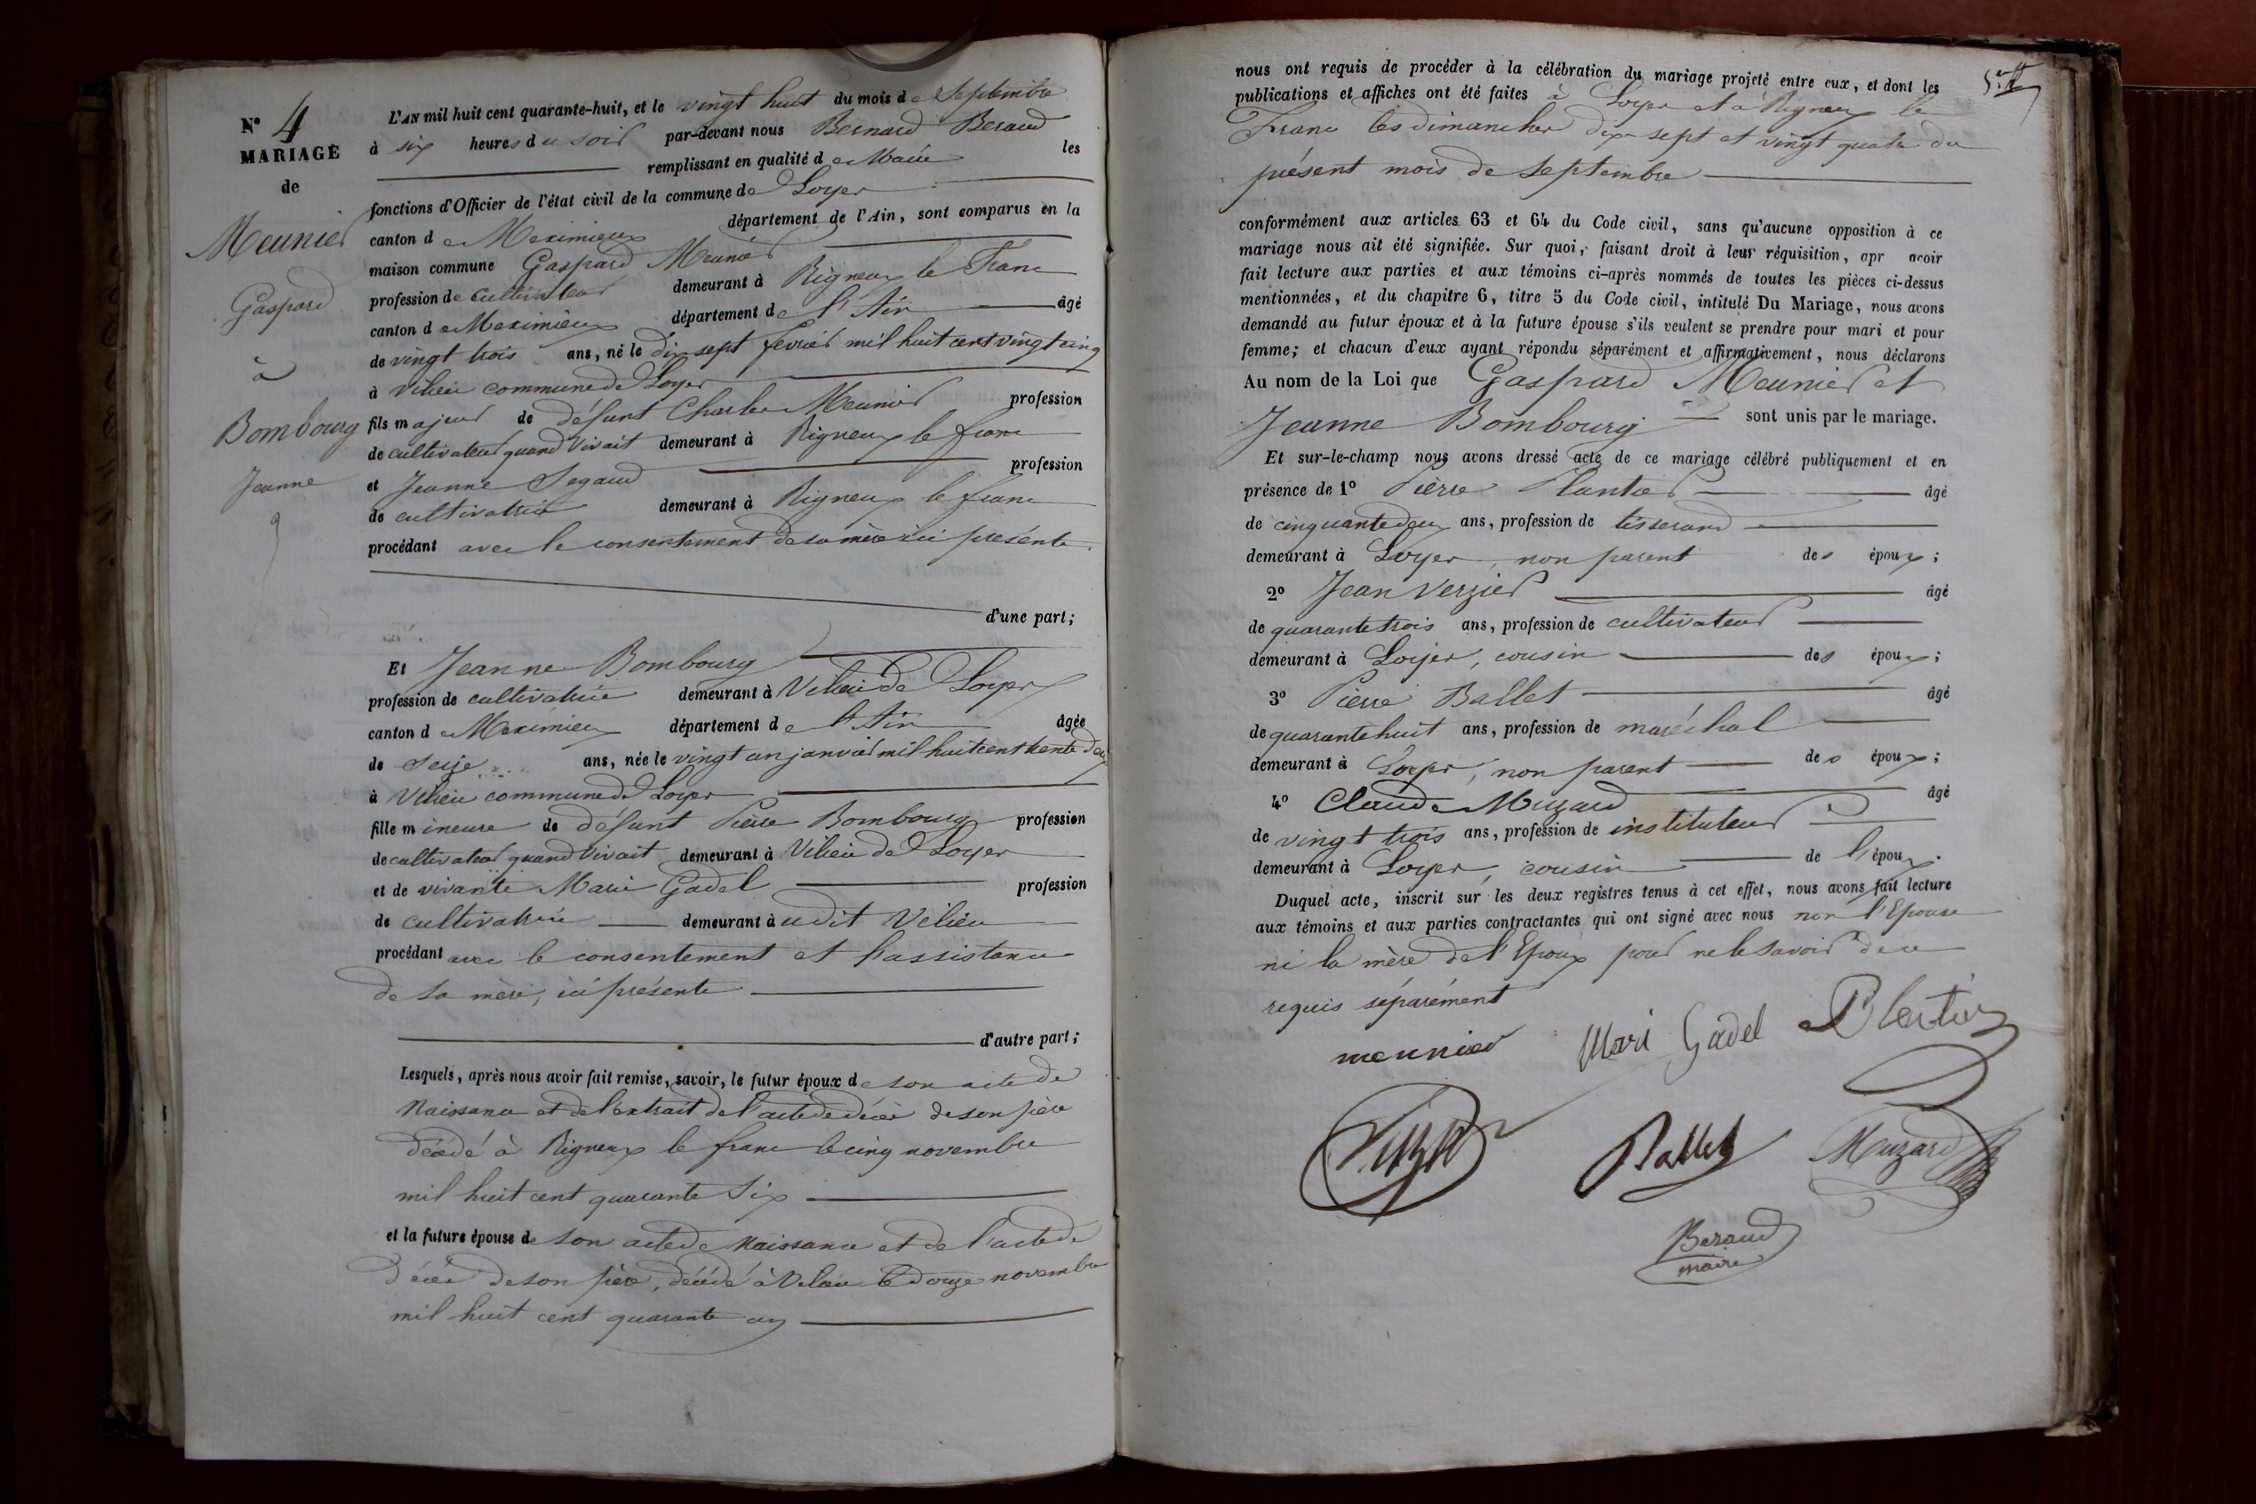 N° 4
MARIAGE
de
Meunier
Gaspard
à
Bombourg
Jeanne
L'AN mil huit cent quarante-huit, et le vingt huit du mois de Septembre
à six heures du soir par-devant nous Bernard Beraud
remplissant en qualité de Maire les
fonctions d'Officier de l'état civil de la commune de Loyer
canton de Meximieux département de l'Ain, sont comparus en la
maison commune Gaspard Meunier
profession de cultivateur demeurant à Rigneux le Franc
canton de Meximieux département de l'Ain âgé
de vingt trois ans, né le dix sept fevrier mil huit cent vingt cinq
à Vilieu commune de Loyer
fils majeur de défunt Charles Meunier profession
de cultivateur quand Vivait demeurant à Rigneux le franc
et Jeanne Segaud profession
de cultivatrice demeurant à Rigneux le franc
procédant avec le consentement de sa mère ici présente
d'une part;
Et Jeanne Bombourg
profession de cultivatrice demeurant à Vilieu de Loyer
canton de Meximieux département de l'Ain âgée
de seize ans, née le vingt un janvier mil huit cent trente deux
à Vilieu commune de Loyer
fille mineure de défunt Pierre Bombourg profession
de cultivateur quand Vivait demeurant à Vilieu de Loyer
et de vivante Marie Gadel profession
de cultivatrice demeurant à udit Vilieu
procédant avec le consentement et l'assistance
de sa mère, ici présente
d'autre part;
Lesquels, après nous avoir fait remise, savoir, le futur époux de son acte de
Naissance et de l'extrait de l'acte de décès de son père
décédé à Rigneux le franc le cinq novembre
mil huit cent quarante six
et la future épouse de son acte de Naissance et de l'acte de
décès de son père, décédé à Vilieu le douze novembre
mil huit cent quarante un
nous ont requis de procéder à la célébration du mariage projeté entre eux, et dont les
publications et affiches ont été faites à Loyer et à Rigneux le
Franc les dimanches dix sept et vingt quatre du
présent mois de Septembre
conformément aux articles 63 et 64 du Code civil, sans qu'aucune opposition à ce
mariage nous ait été signifiée. Sur quoi, faisant droit à leur réquisition, apr avoir
fait lecture aux parties et aux témoins ci-après nommés de toutes les pièces ci-dessus
mentionnées, et du chapitre 6, titre 5 du Code civil, intitulé Du Mariage, nous avons
demandé au futur époux et à la future épouse s'ils veulent se prendre pour mari et pour
femme; et chacun d'eux ayant répondu séparément et affirmativement, nous déclarons
Au nom de la Loi que Gaspard Meunier et
Jeanne Bombourg sont unis par le mariage.
Et sur-le-champ nous avons dressé acte de ce mariage célébré publiquement et en
présence de 1° Pierre Plantier âgé
de cinquante deux ans, profession de tisserand
demeurant à Loyer, non parent des époux;
2° Jean Verzier âgé
de quarante trois ans, profession de cultivateur
demeurant à Loyer, cousin des époux;
3° Pierre Ballet âgé
de quarante huit ans, profession de maréchal
demeurant à Loyer, non parent des époux;
4° Claude Muzard âgé
de vingt trois ans, profession de instituteur
demeurant à Loyer, cousin de l'époux.
Duquel acte, inscrit sur les deux registres tenus à cet effet, nous avons fait lecture
aux témoins et aux parties contractantes qui ont signé avec nous non l'Epouse
ni la mère de l'Epoux pour ne le savoir de ce
requis séparément
meunier Mari Gadel
Ballet Muzard
Beraud
maire